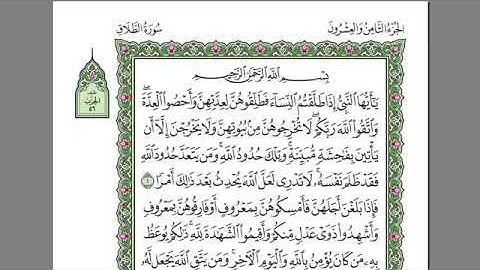 الجزء الثامن والعشرون
سورة الطلاق
نصف
الحزب
٥٦
بِسْمِ ٱللَّهِ ٱلرَّحْمَٰنِ ٱلرَّحِيمِ
يَٰٓأَيُّهَا ٱلنَّبِىُّ إِذَا طَلَّقْتُمُ ٱلنِّسَآءَ فَطَلِّقُوهُنَّ لِعِدَّتِهِنَّ وَأَحْصُوا۟ ٱلْعِدَّةَ ۖ
وَٱتَّقُوا۟ ٱللَّهَ رَبَّكُمْ ۖ لَا تُخْرِجُوهُنَّ مِنۢ بُيُوتِهِنَّ وَلَا يَخْرُجْنَ إِلَّآ أَن
يَأْتِينَ بِفَٰحِشَةٍ مُّبَيِّنَةٍ ۚ وَتِلْكَ حُدُودُ ٱللَّهِ ۚ وَمَن يَتَعَدَّ حُدُودَ ٱللَّهِ
فَقَدْ ظَلَمَ نَفْسَهُۥ ۚ لَا تَدْرِى لَعَلَّ ٱللَّهَ يُحْدِثُ بَعْدَ ذَٰلِكَ أَمْرًا ١
فَإِذَا بَلَغْنَ أَجَلَهُنَّ فَأَمْسِكُوهُنَّ بِمَعْرُوفٍ أَوْ فَارِقُوهُنَّ بِمَعْرُوفٍ
وَأَشْهِدُوا۟ ذَوَىْ عَدْلٍ مِّنكُمْ وَأَقِيمُوا۟ ٱلشَّهَٰدَةَ لِلَّهِ ۚ ذَٰلِكُمْ يُوعَظُ
بِهِۦ مَن كَانَ يُؤْمِنُ بِٱللَّهِ وَٱلْيَوْمِ ٱلْءَاخِرِ ۚ وَمَن يَتَّقِ ٱللَّهَ يَجْعَل لَّهُۥ